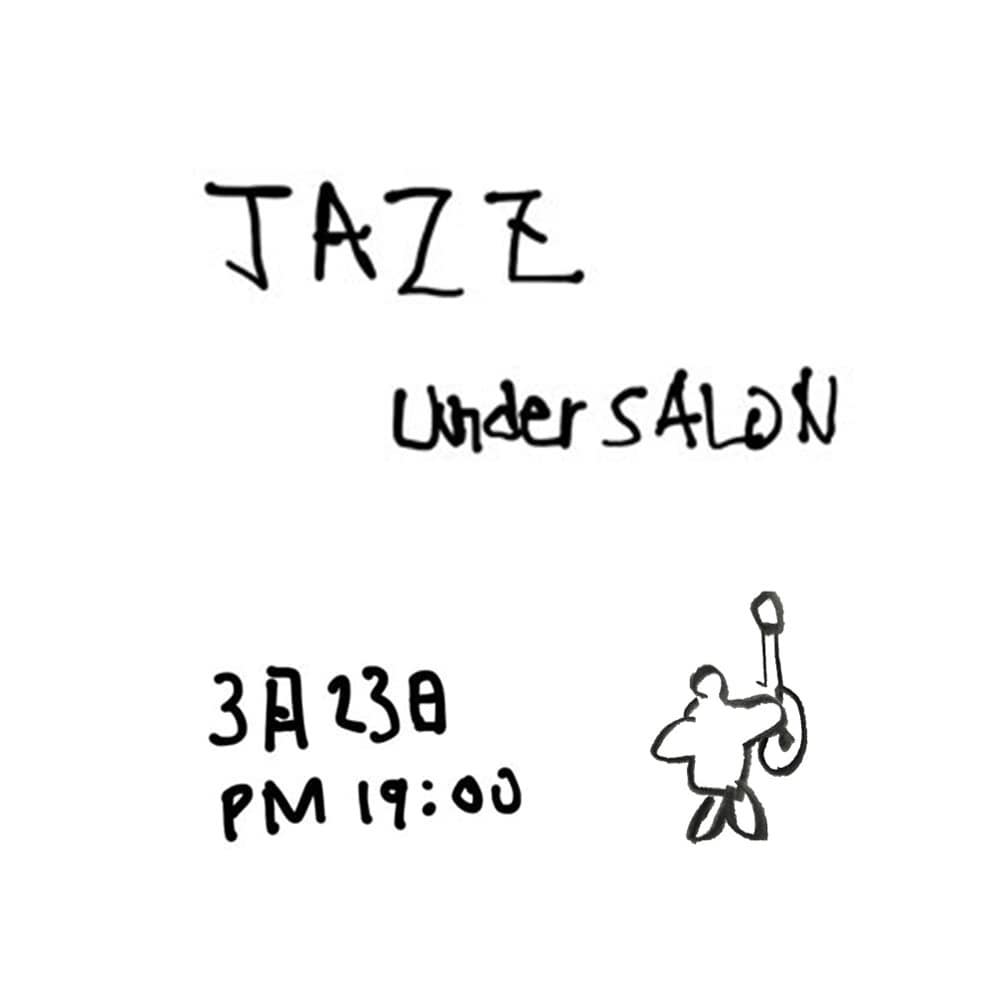 JAZZ
Under SALON
3月23日
PM 19:00